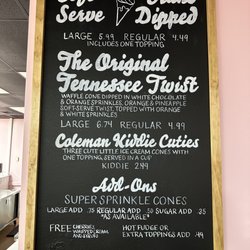 Serve Dipped
LARGE 5.99 REGULAR 4.99
INCLUDES ONE TOPPING
The Original
Tennessee Twist
WAFFLE CONE DIPPED IN WHITE CHOCOLATE
& ORANGE SPRINKLES, ORANGE & PINEAPPLE
SOFT-SERVE TWIST, TOPPED WITH ORANGE
& WHITE SPRINKLES
LARGE 6.99 REGULAR
Coleman Kiddie Cuties
THREE CUTE LITTLE ICE CREAM CONES WITH
ONE TOPPING SERVED IN A CUP
KIDDIE
Add-Ons
SUPER SPRINKLE CONES
LARGE ADD .75 REGULAR ADD .50 SUGAR ADD .25
*AS AVAILABLE*
FREE CHERRIES, HOT FUDGE OR
WHIPPED CREAM, EXTRA TOPPINGS ADD .49